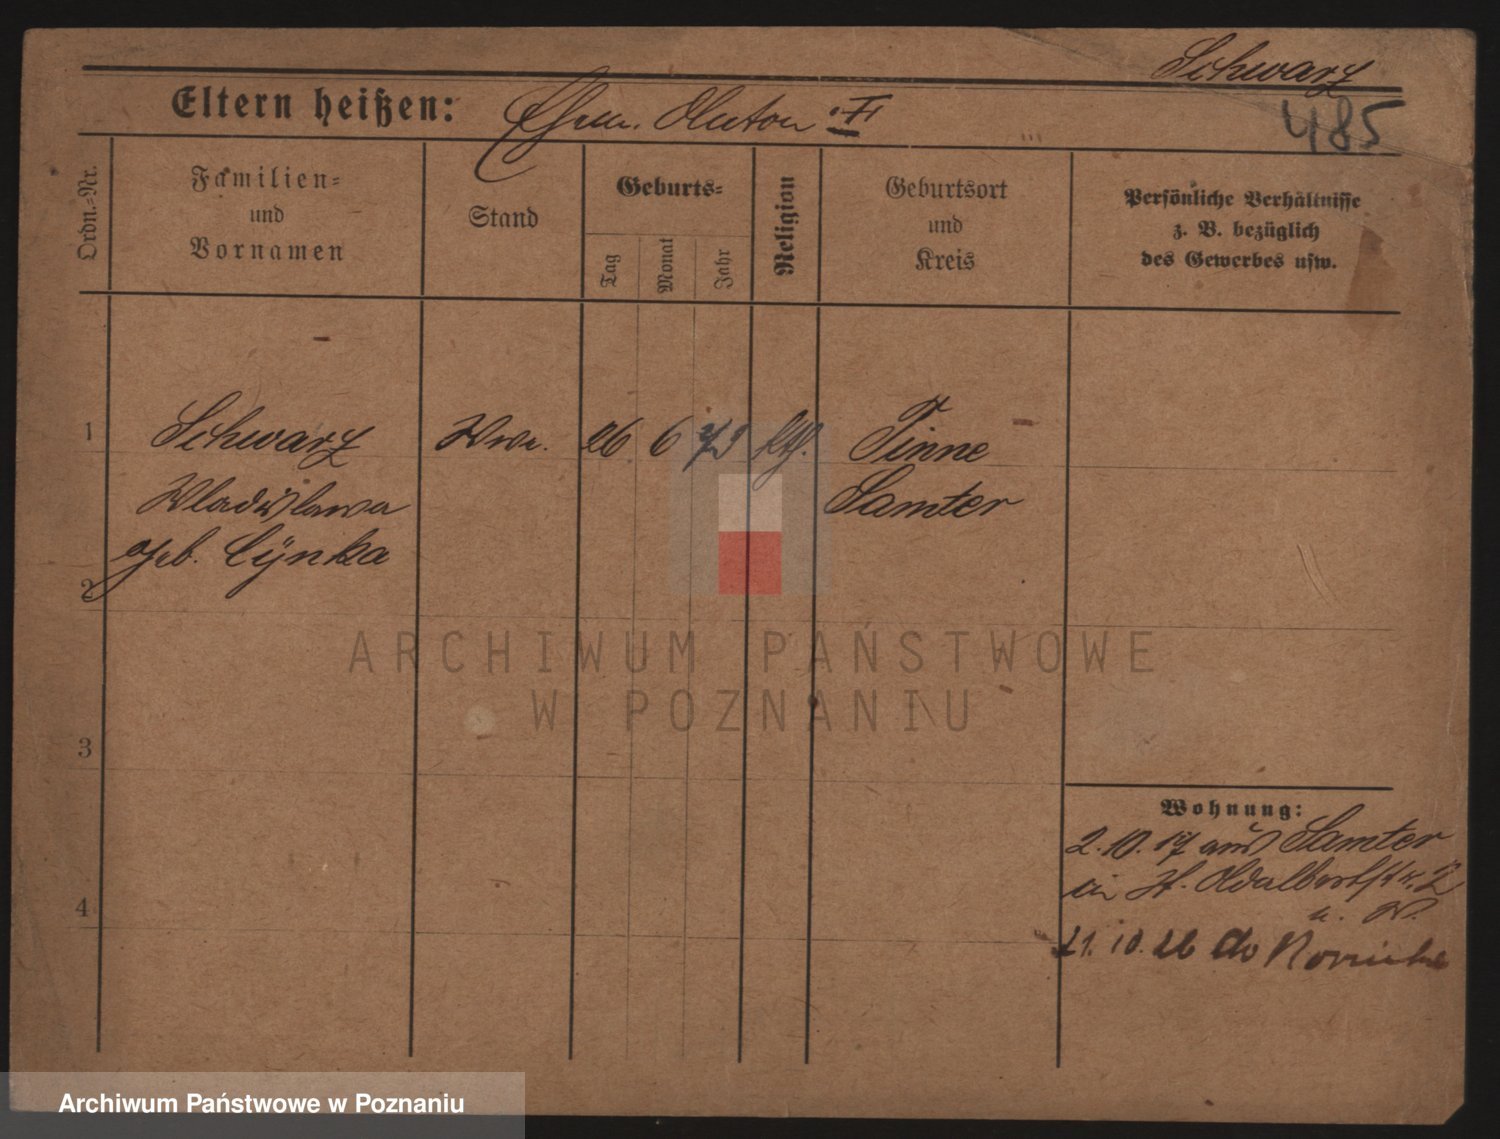 Schwarz
Eltern heißen: Ehem. Anton II
485
Ordn.-Nr.
Familien-
und
Vornamen
Stand
Geburts-
Tag
Monat
Jahr
Religion
Geburtsort
und
Kreis
Persönliche Verhältnisse
z. B. bezüglich
des Gewerbes usw.
1
Schwarz Wwe. 26 6 73 kth. Pinne
Wladislawa Samter
geb. Cÿnka
2
3
4
Wohnung:
2. 10. 17 aus Samter
in St. Adalbertstr. 2
u. W.
21. 10. 26 do
ARCHIWUM PAŃSTWOWE
W POZNANIU
Archiwum Państwowe w Poznaniu